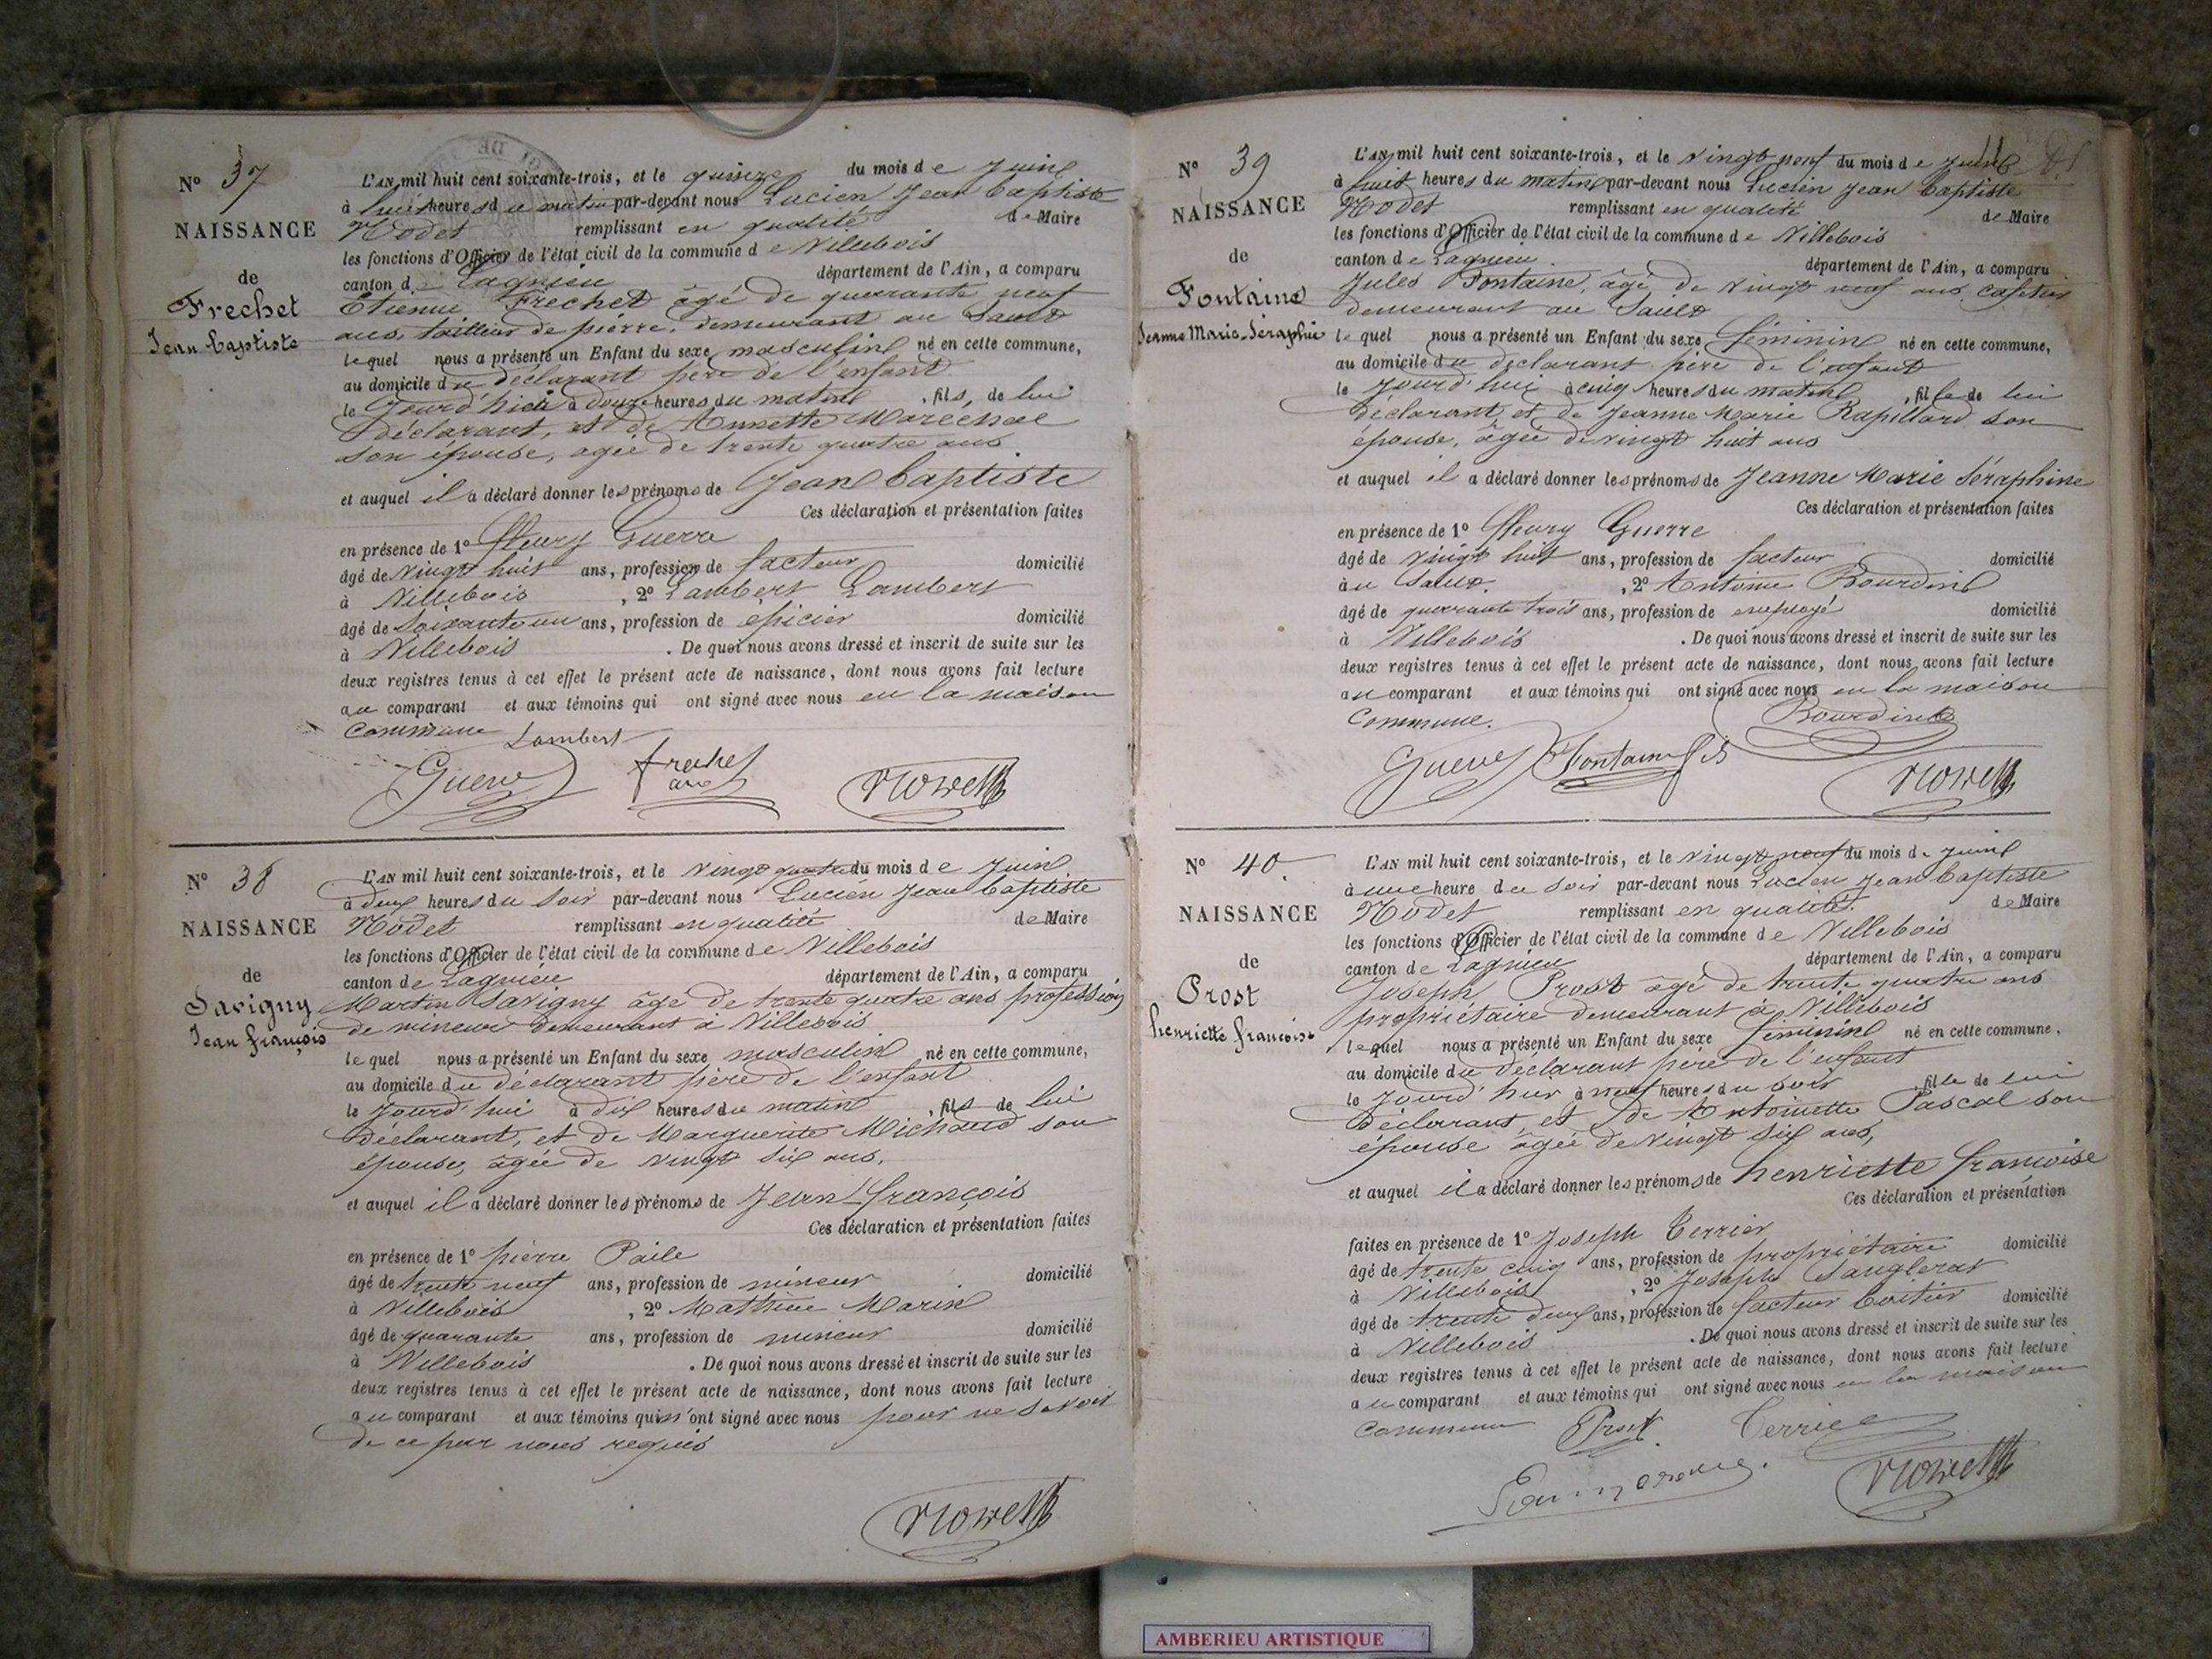 N° 37
NAISSANCE
de
Frechet
Jean Baptiste
L'AN mil huit cent soixante-trois, et le quinze du mois de Juin
à huit heures du matin par-devant nous Lucien Jean Baptiste
Nodet remplissant en qualité de Maire
les fonctions d'Officier de l'état civil de la commune de Villebois
canton de Lagnieu département de l'Ain, a comparu
Etienne Frechet âgé de quarante neuf
ans, tailleur de pierre, demeurant au Sault
lequel nous a présenté un Enfant du sexe masculin né en cette commune,
au domicile du déclarant père de l'enfant
le jourd'hui à douze heures du matin, fils, de lui
déclarant, et de Annette Maréchal
son épouse, agée de trente quatre ans
et auquel il a déclaré donner les prénoms de Jean Baptiste
Ces déclaration et présentation faites
en présence de 1° fleury Guerre
âgé de vingt huit ans, profession de facteur domicilié
à Villebois, 2° Lambert Lambert
âgé de soixante un ans, profession de épicier domicilié
à Villebois. De quoi nous avons dressé et inscrit de suite sur les
deux registres tenus à cet effet le présent acte de naissance, dont nous avons fait lecture
au comparant et aux témoins qui ont signé avec nous en la maison
commune
Lambert
Guerre Frechet
N° 38
NAISSANCE
de
Savigny
Jean françois
L'AN mil huit cent soixante-trois, et le vingt quatre du mois de Juin
à deux heures du soir par-devant nous Lucien Jean Baptiste
Nodet remplissant en qualité de Maire
les fonctions d'Officier de l'état civil de la commune de Villebois
canton de Lagnieu département de l'Ain, a comparu
Martin Savigny âgé de trente quatre ans profession
de mineur demeurant à Villebois
lequel nous a présenté un Enfant du sexe masculin né en cette commune,
au domicile du déclarant père de l'enfant
le jourd'hui à dix heures du matin, fils de lui
déclarant, et de Marguerite Michaud son
épouse, âgée de vingt six ans.
et auquel il a déclaré donner les prénoms de Jean françois
Ces déclaration et présentation faites
en présence de 1° pierre Paile
âgé de trente neuf ans, profession de mineur domicilié
à Villebois, 2° Mathieu Marin
âgé de quarante ans, profession de mineur domicilié
à Villebois. De quoi nous avons dressé et inscrit de suite sur les
deux registres tenus à cet effet le présent acte de naissance, dont nous avons fait lecture
au comparant et aux témoins qui n'ont signé avec nous pour ne savoir
de ce par nous requis
N° 39
NAISSANCE
de
Fontaine
Jeanne Marie Séraphie
L'AN mil huit cent soixante-trois, et le vingt neuf du mois de Juin
à huit heures du matin par-devant nous Lucien Jean Baptiste
Nodet remplissant en qualité de Maire
les fonctions d'Officier de l'état civil de la commune de Villebois
canton de Lagnieu département de l'Ain, a comparu
Jules Fontaine, âgé de vingt neuf ans, cafetier
demeurant au Sault
lequel nous a présenté un Enfant du sexe féminin né en cette commune,
au domicile du déclarant père de l'enfant
le jourd'hui à cinq heures du matin, fille de lui
déclarant et de Jeanne Marie Rapillard son
épouse, âgée de vingt huit ans
et auquel il a déclaré donner les prénoms de Jeanne Marie Séraphine
Ces déclaration et présentation faites
en présence de 1° fleury Guerre
âgé de vingt huit ans, profession de facteur domicilié
au Sault, 2° Antoine Bourdin
âgé de quarante trois ans, profession de employé domicilié
à Villebois. De quoi nous avons dressé et inscrit de suite sur les
deux registres tenus à cet effet le présent acte de naissance, dont nous avons fait lecture
au comparant et aux témoins qui ont signé avec nous en la maison
commune.
Bourdin
Guerre Fontaine fils
N° 40
NAISSANCE
de
Prost
henriette francoise
L'AN mil huit cent soixante-trois, et le vingt neuf du mois de Juin
à une heure du soir par-devant nous Lucien Jean Baptiste
Nodet remplissant en qualité de Maire
les fonctions d'Officier de l'état civil de la commune de Villebois
canton de Lagnieu département de l'Ain, a comparu
Joseph Prost âgé de trente quatre ans
propriétaire demeurant à Villebois
lequel nous a présenté un Enfant du sexe féminin né en cette commune,
au domicile du déclarant père de l'enfant
le jourd'hier à neuf heures du soir, fille de lui
déclarant, et de Antoinette Pascal son
épouse âgée de vingt six ans,
et auquel il a déclaré donner les prénoms de henriette françoise
Ces déclaration et présentation
faites en présence de 1° Joseph Terrier
âgé de trente cinq ans, profession de propriétaire domicilié
à Villebois, 2° Joseph Sanglerat
âgé de trente deux ans, profession de facteur boitier domicilié
à Villebois. De quoi nous avons dressé et inscrit de suite sur les
deux registres tenus à cet effet le présent acte de naissance, dont nous avons fait lecture
au comparant et aux témoins qui ont signé avec nous en la maison
commune Prost Terrier
AMBERIEU ARTISTIQUE